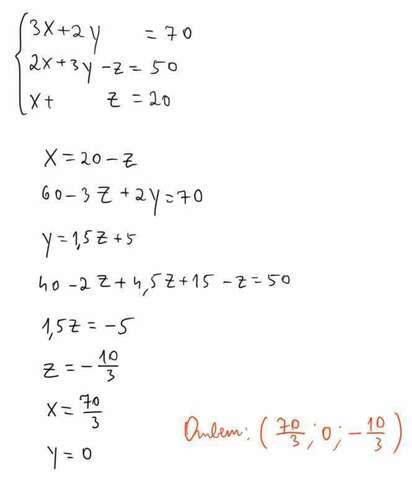 3x+2y = 70
2x+3y-z=50
x+ z=20
x=20-z
60-3z+2y=70
y=1,5z+5
40-2z+4,5z+15-z=50
1,5z=-5
z=-10/3
x=70/3
y=0
Ответ: (70/3; 0; -10/3)